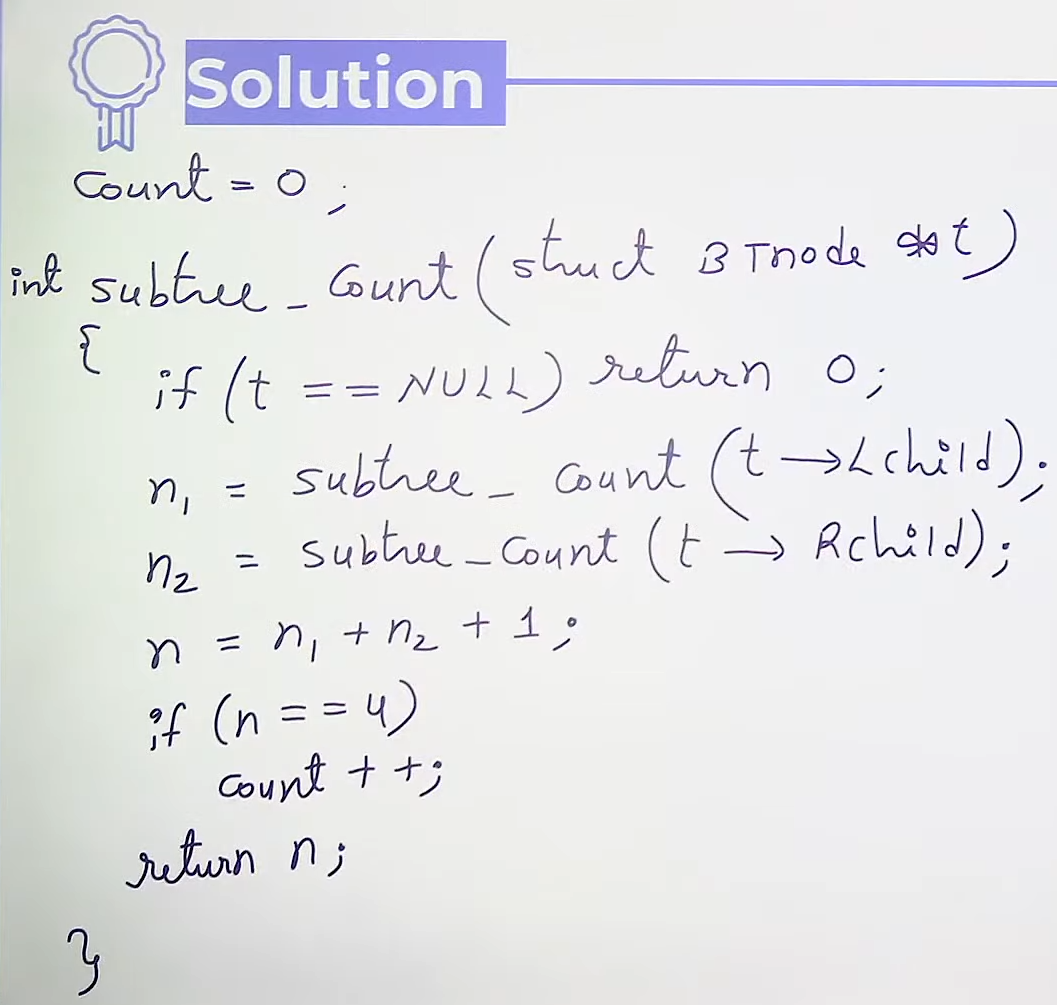 Solution
Count = 0 ;
int subtree_Count (struct BTnode *t)
{
if (t == NULL) return 0;
n1 = subtree_count (t→Lchild);
n2 = subtree_Count (t → Rchild);
n = n1 + n2 + 1;
if (n == 4)
count ++;
return n;
}